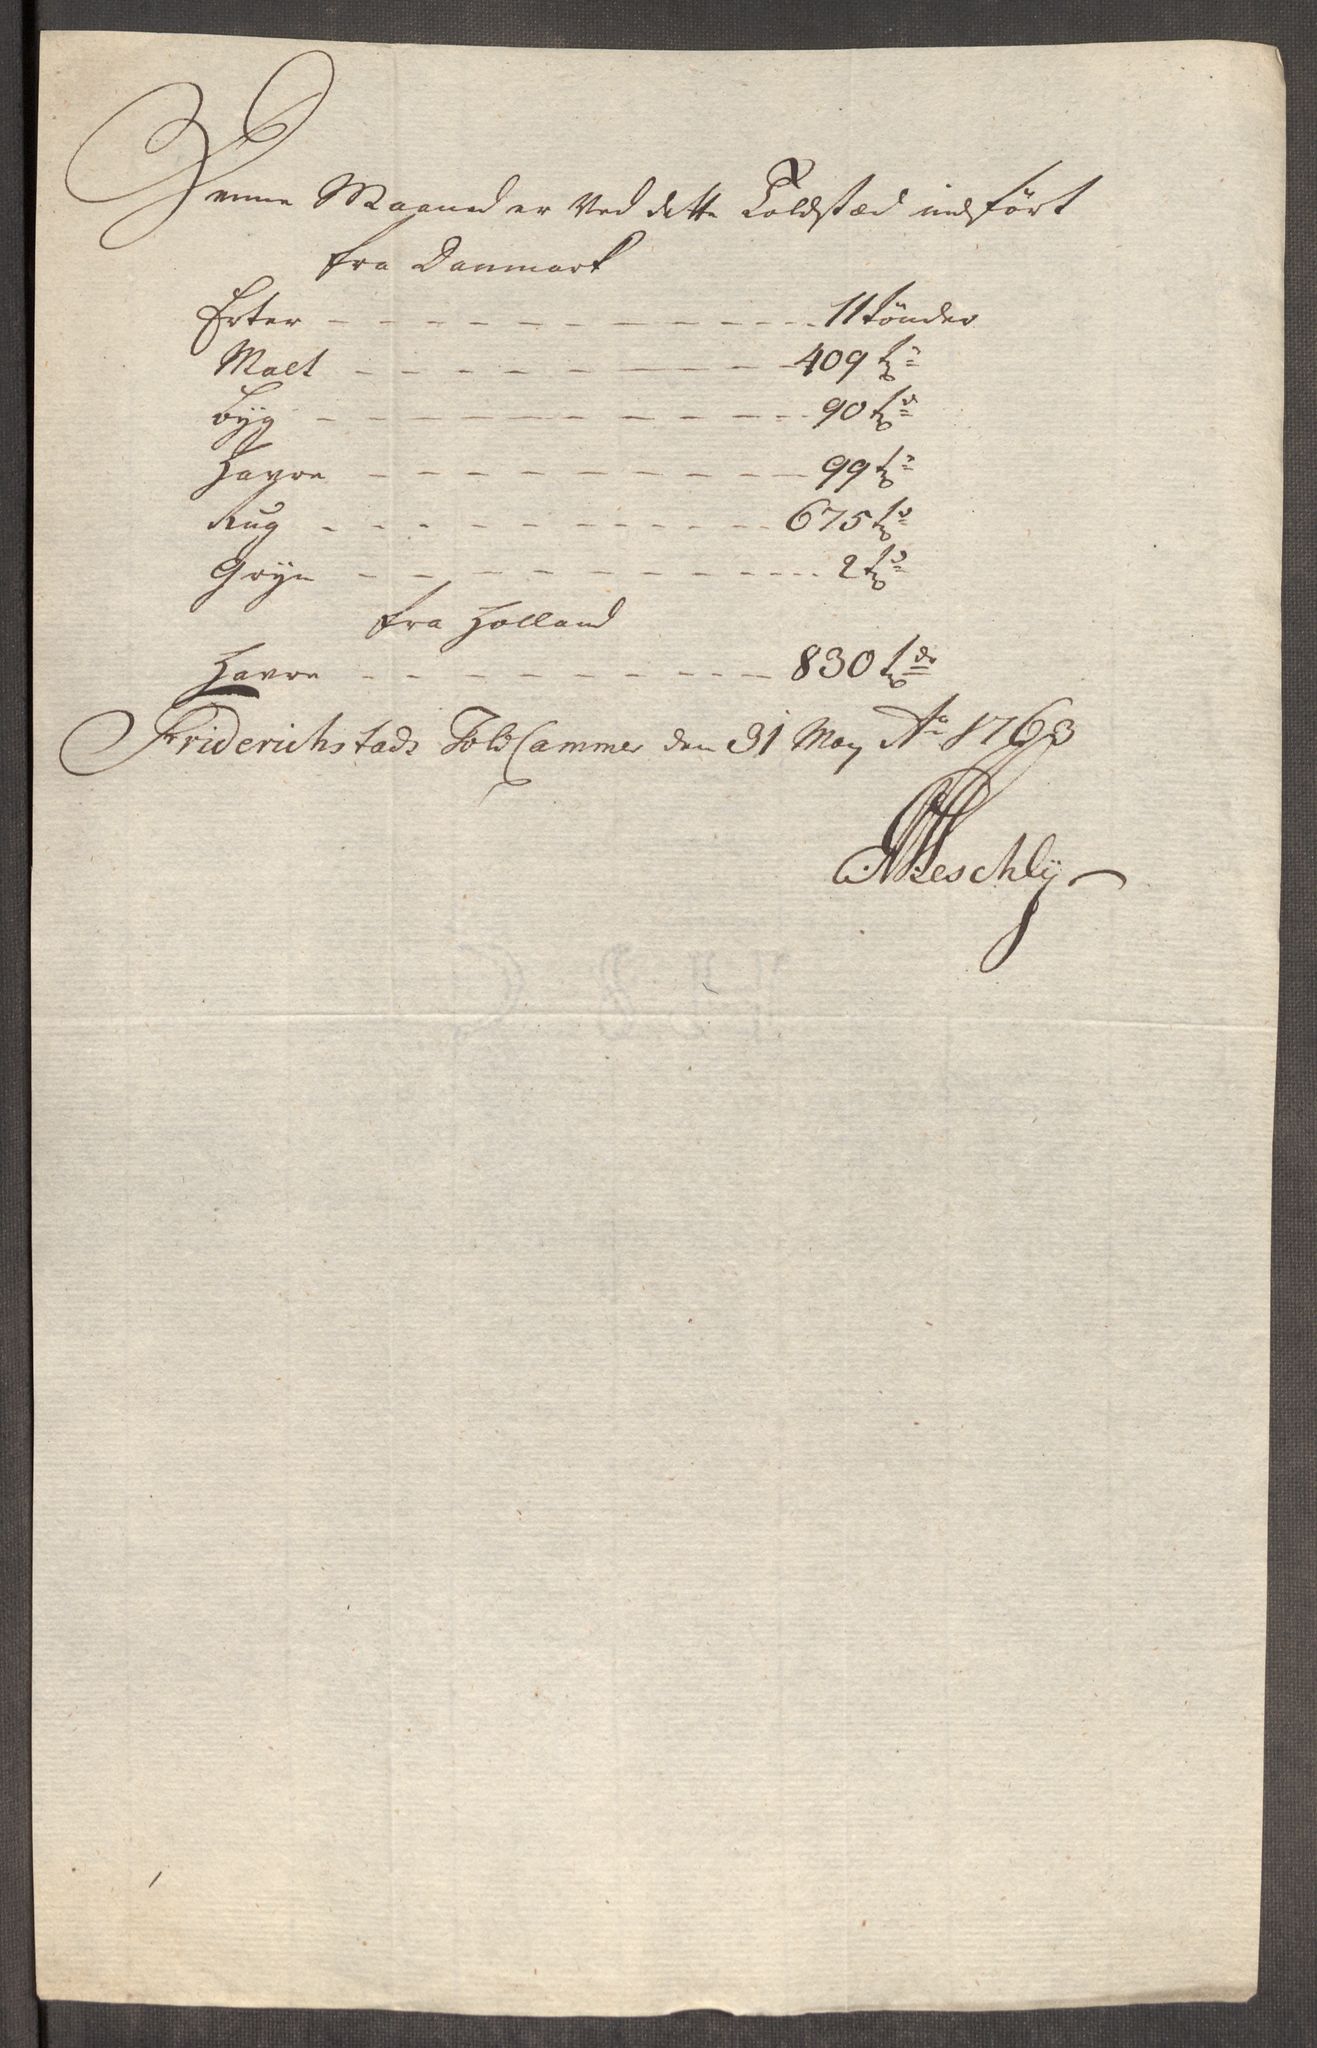 Denne Maaned er Ved dette Toldstæd indført
fra Danmark
Erter - - - - - - - - - - - 11 tönder
Malt - - - - - - - - - - 409 td
Byg - - - - - - - - - - - 90 td
Havre - - - - - - - - - - 99 td
Rug - - - - - - - - - - 675 td
Gryn - - - - - - - - - - - 2 td
fra Holland
Havre - - - - - - - - - 830 tdr
Friderichstads ToldCammer den 31 May Ao 1763